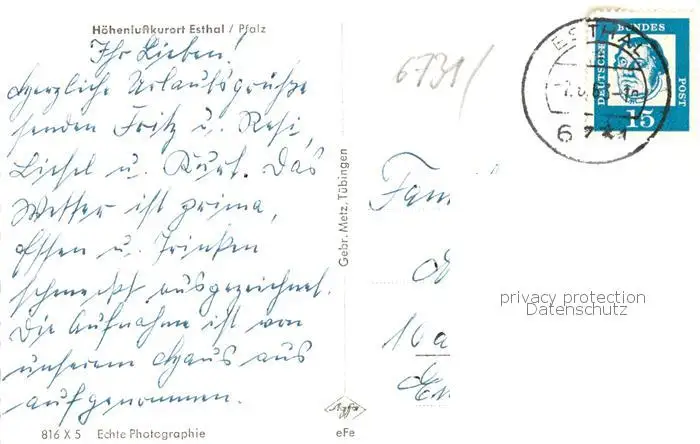 Höhenluftkurort Esthal / Pfalz
Ihr Lieben!
Herzliche Urlaubsgrüße
senden Fritz u. Resi,
Liesel u. Kurt. Das
Wetter ist prima,
Essen u. Trinken
schmeckt ausgezeichnet.
Die Aufnahme ist von
unserem Haus aus
aufgenommen.
816 X 5 Echte Photographie
Gebr. Metz, Tübingen
Agfa
eFe
6731/
ESTHAL
DEUTSCHE
BUNDES
POST
15
Fam
16a
privacy protection
Datenschutz